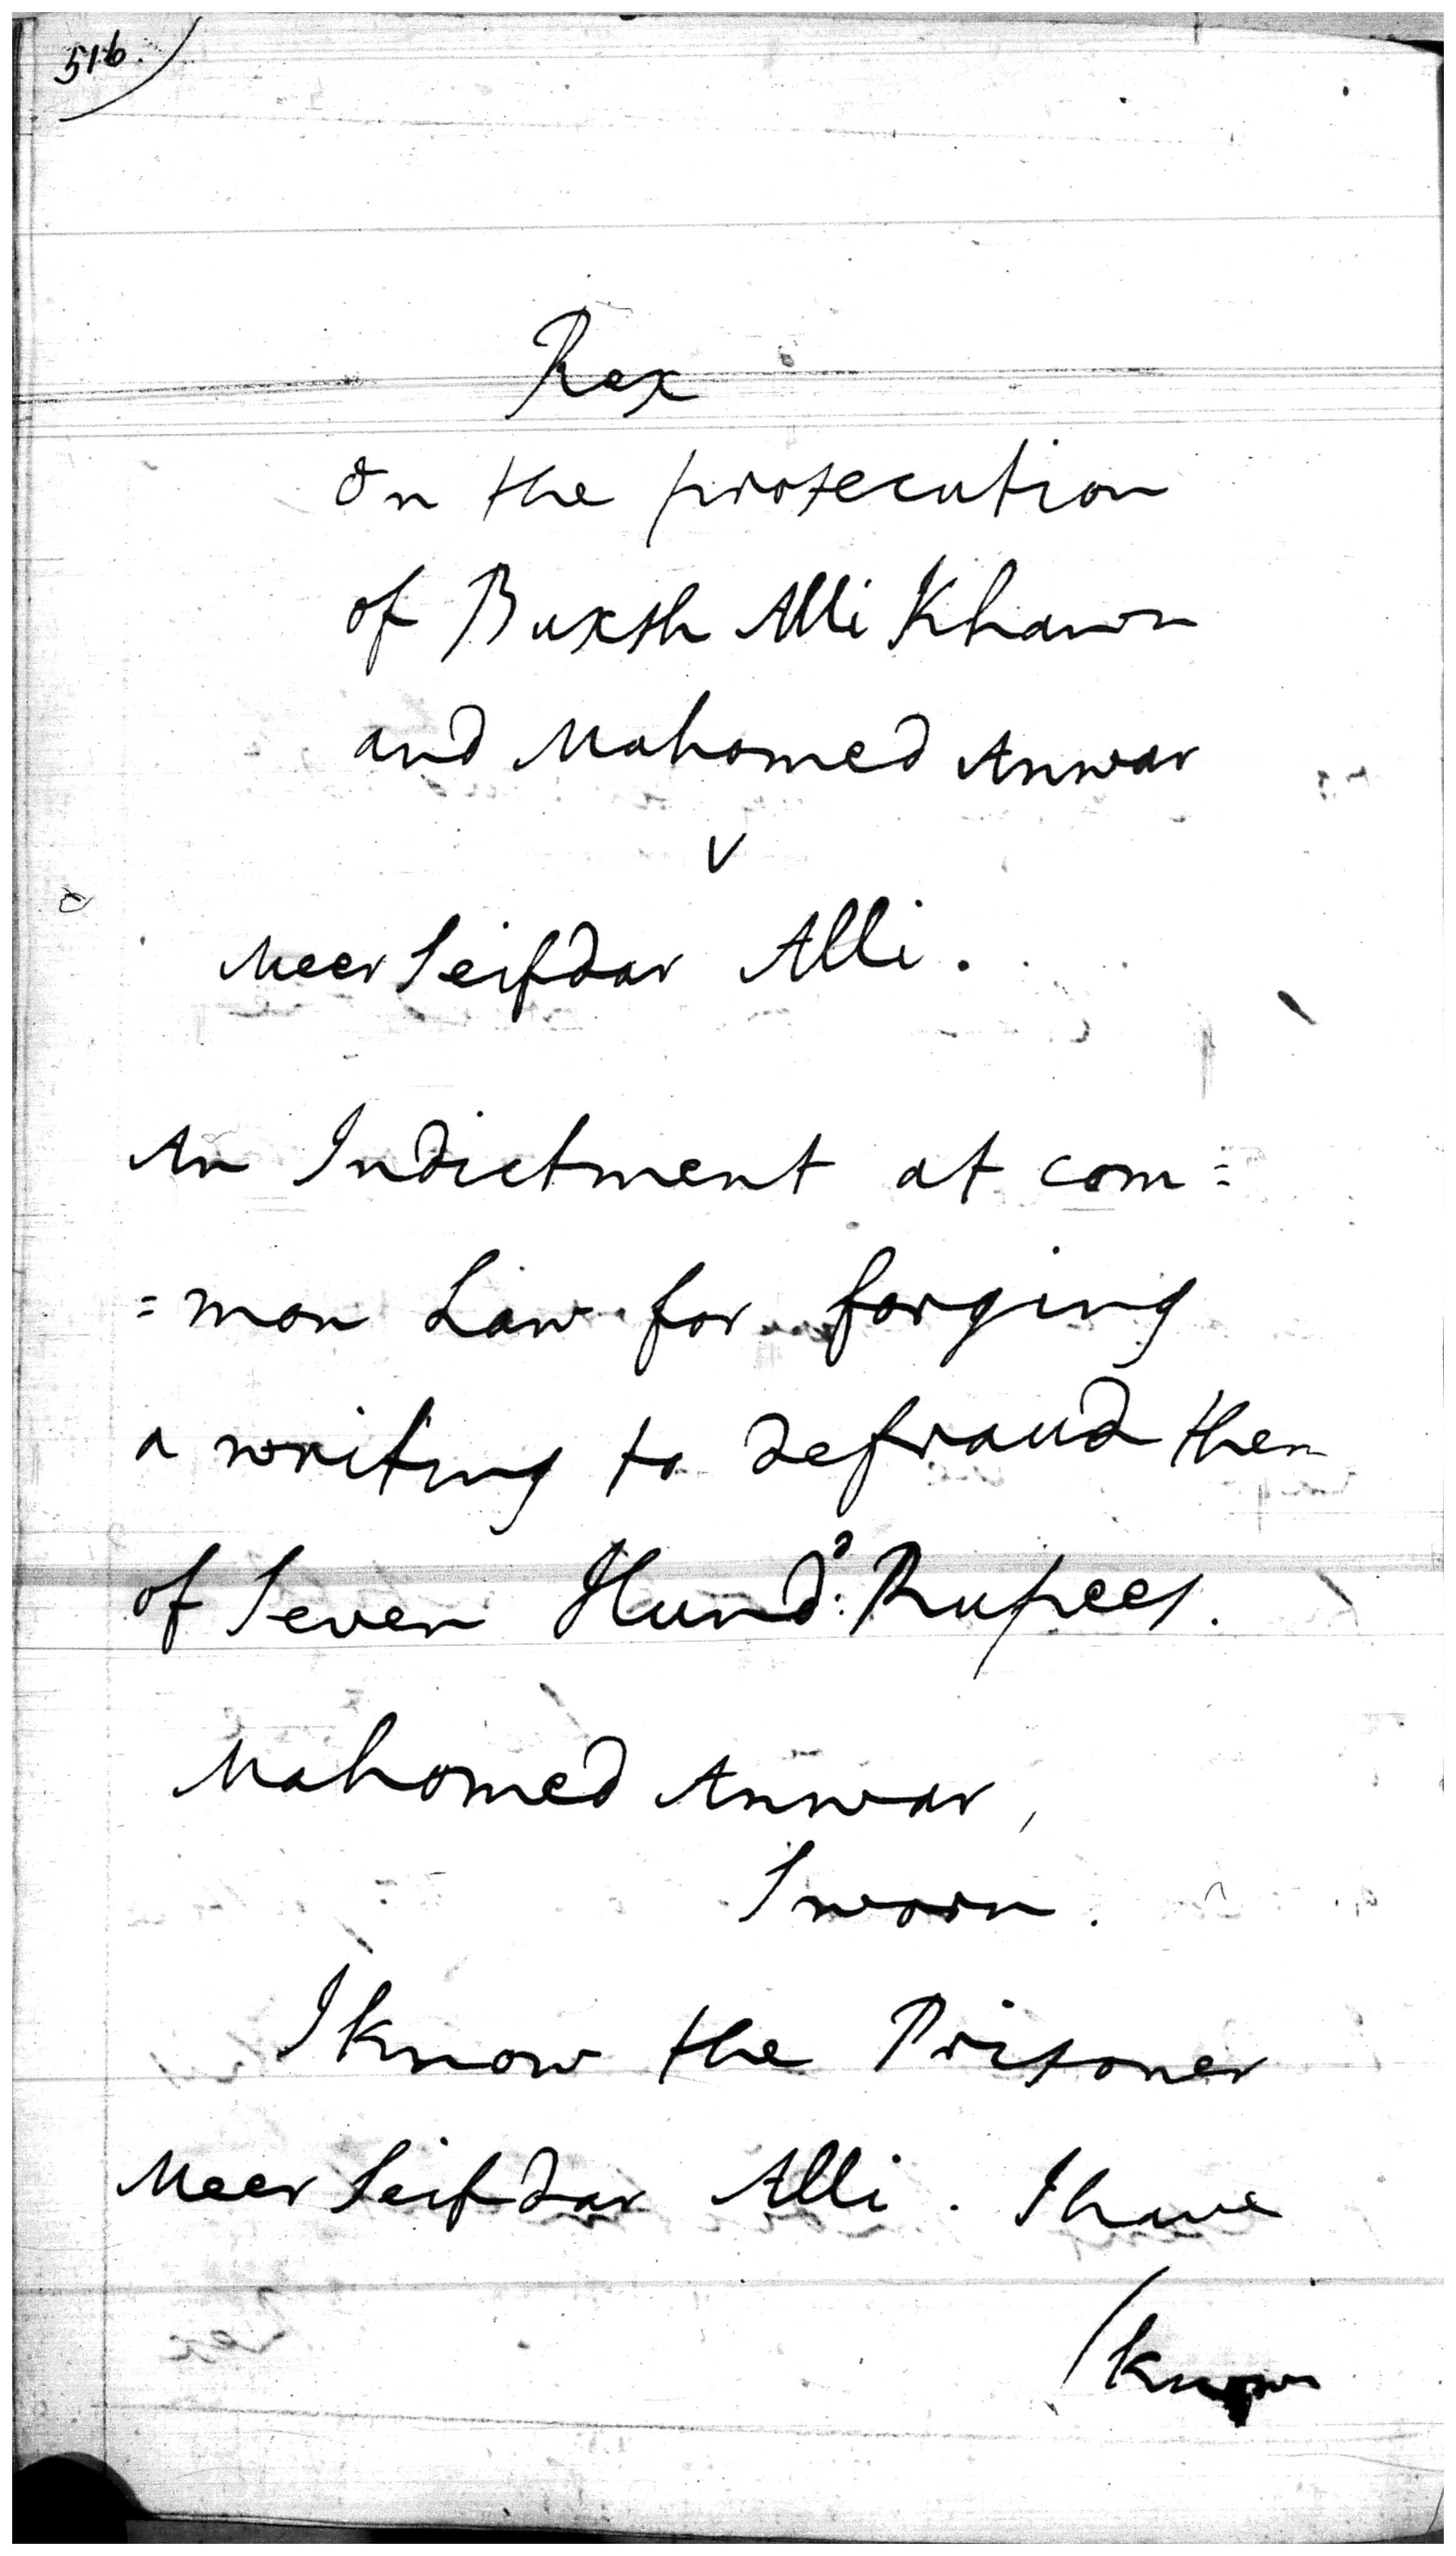 516.
Rex
On the prosecution
of Buxsh Alli Khawn
and Mahomed Anwar
v
Meer Seifdar Alli.
An Indictment at com=
=mon Law for forging
a writing to defraud them
of Seven Hund.d Rupees.
Mahomed Anwar,
Sworn.
I know the Prisoner
Meer Seifdar Alli. I have
/known